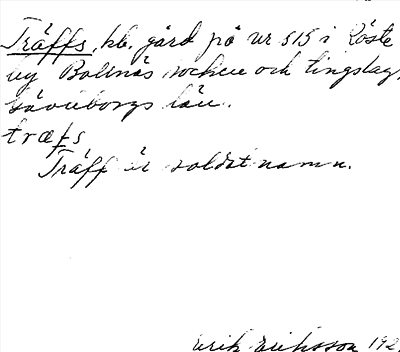 Träffs, hb. gård på nr 515 i Röste
by Bollnäs socken och tingslag,
Gävleborgs län.
træfs
Träff är soldatnamn.
Erik Eriksson 192